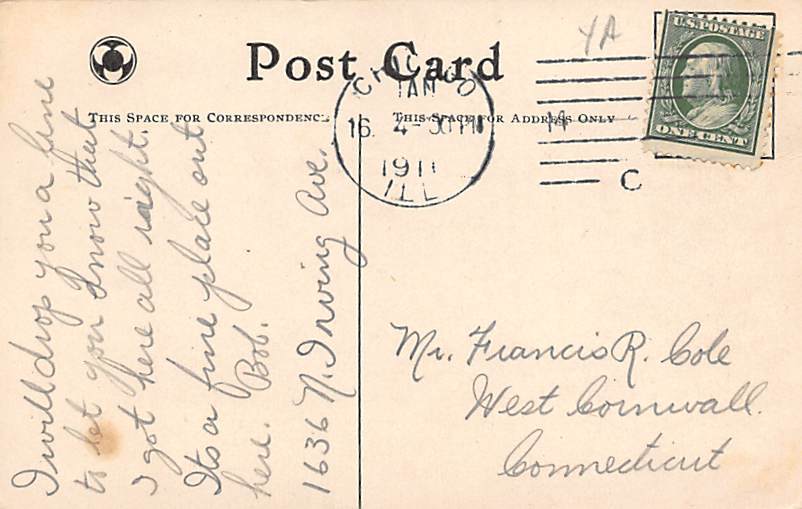 Post Card
THIS SPACE FOR CORRESPONDENCE
THIS SPACE FOR ADDRESS ONLY
YA
U.S. POSTAGE
ONE CENT
CHICAGO
JAN
16. 4-30 PM
1911
ILL
C
I will drop you a line
to let you know that
I got here all right.
Its a fine place out
here. Bob.
1636 N. Irving Ave.
Mr. Francis R. Cole
West Cornwall.
Connecticut